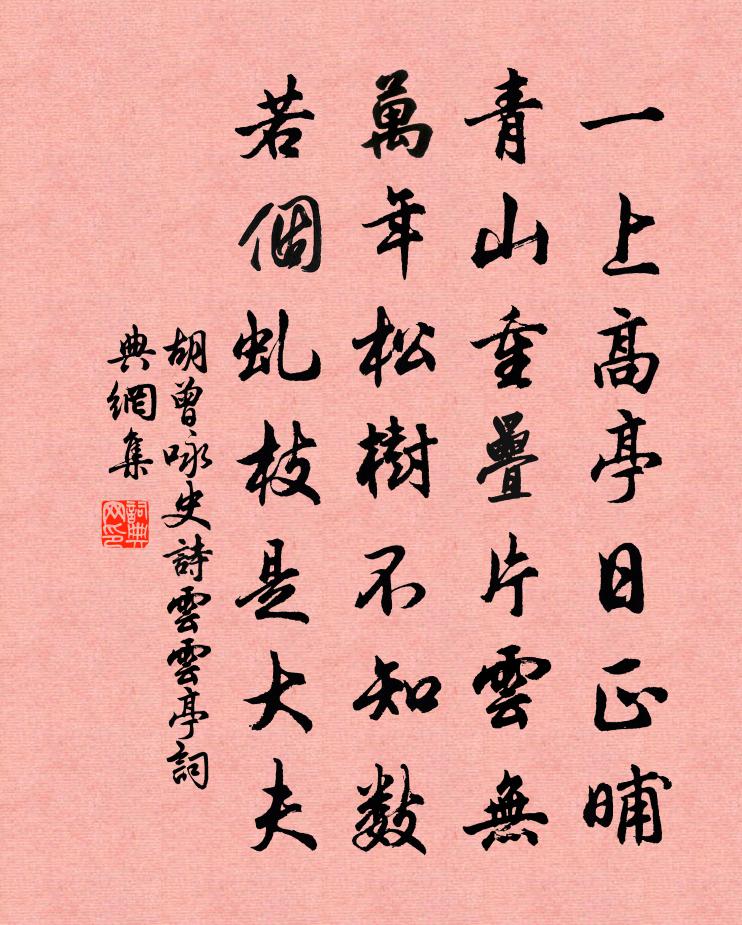 一上高亭日正晡
青山重疊片雲無
萬年松樹不知数
若個虬枝是大夫
胡曾咏史詩雲雲亭詞
典網集
詞典
网印